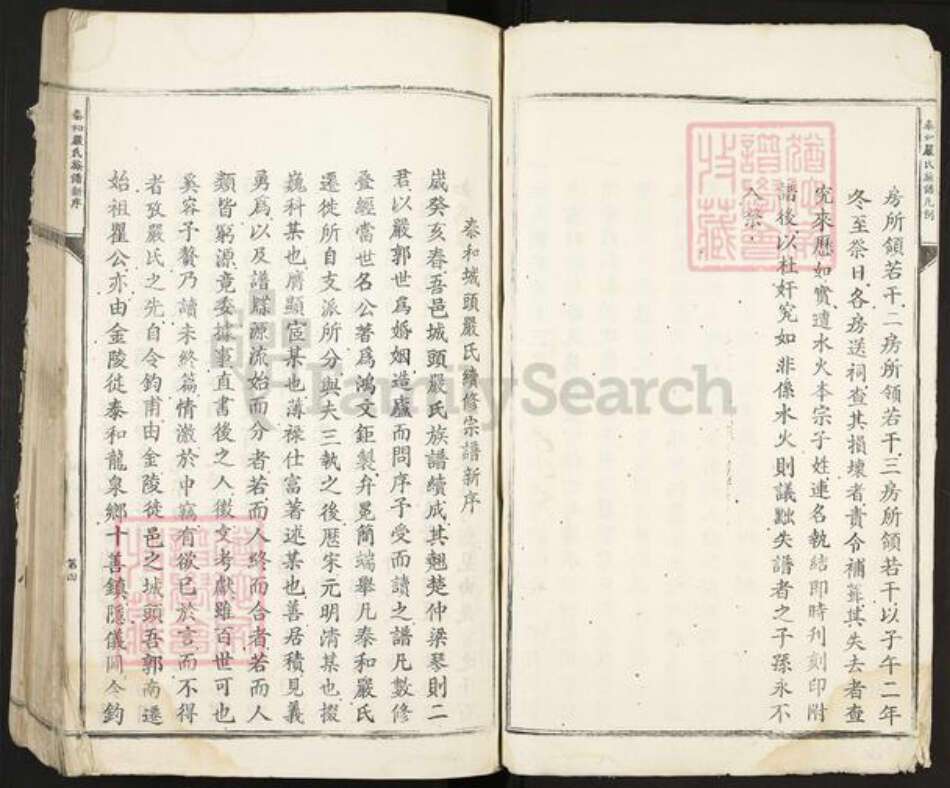 泰和嚴氏族譜凡例
房所領若干二房所領若干三房所領若干以子午二年
冬至祭日各房送祠查其損壞者責令補葺其失去者查
究來歷如實遭水火本宗子姓連名執結即時刊刻印附
譜後以杜奸宄如非係水火則議黜失譜者之子孫永不
入祭
泰和城頭嚴氏續修宗譜新序
歲癸亥春吾邑城頭嚴氏族譜續成其翹楚仲梁琴則二
君以嚴郭世爲婚姻造廬而問序予受而讀之譜凡數修
叠經當世名公著爲鴻文鉅製弁冕簡端舉凡泰和嚴氏
遷徙所自支派所分與夫三執之後歷宋元明清某也掇
巍科某也膺顯宦某也薄祿仕富著述某也善居積見義
勇爲以及譜牒源流始而分者若而人終而合者若而人
類皆窮源竟委據事直書後之人徵文考獻雖百世可也
奚容予贅乃讀未終篇情激於中竊有欲已於言而不得
者攷嚴氏之先自令鈞甫由金陵徙邑之城頭吾郭南遷
始祖瞿公亦由金陵徙泰和龍泉鄉十善鎮隱儀同令鈞
泰和嚴氏族譜新序
FamilySearch